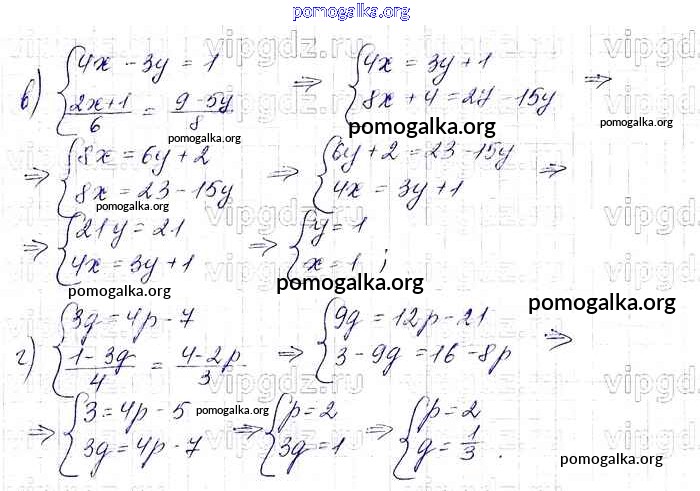 pomogalka.org
vipgdz.ru vipgdz.ru vipgdz.ru
в) { 4x - 3y = 1 ; (2x+1)/6 = (9-5y)/8 ⇒ { 4x = 3y + 1 ; 8x + 4 = 27 - 15y ⇒
pomogalka.org pomogalka.org pomogalka.org
⇒ { 8x = 6y + 2 ; 8x = 23 - 15y ⇒ { 6y + 2 = 23 - 15y ; 4x = 3y + 1 ⇒
pomogalka.org
⇒ { 21y = 21 ; 4x = 3y + 1 ⇒ { y = 1 ; x = 1 ;
pomogalka.org pomogalka.org pomogalka.org
г) { 3g = 4p - 7 ; (1-3g)/4 = (4-2p)/3 ⇒ { 9g = 12p - 21 ; 3 - 9g = 16 - 8p ⇒
pomogalka.org
⇒ { 3 = 4p - 5 ; 3g = 4p - 7 ⇒ { p = 2 ; 3g = 1 ⇒ { p = 2 ; g = 1/3 .
pomogalka.org